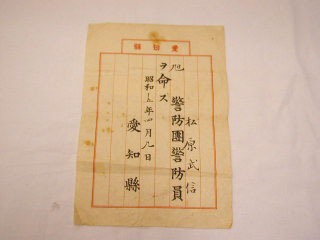 愛知縣
松原武信
旭警防團警防員
ヲ命ス
昭和十五年四月九日
愛知縣